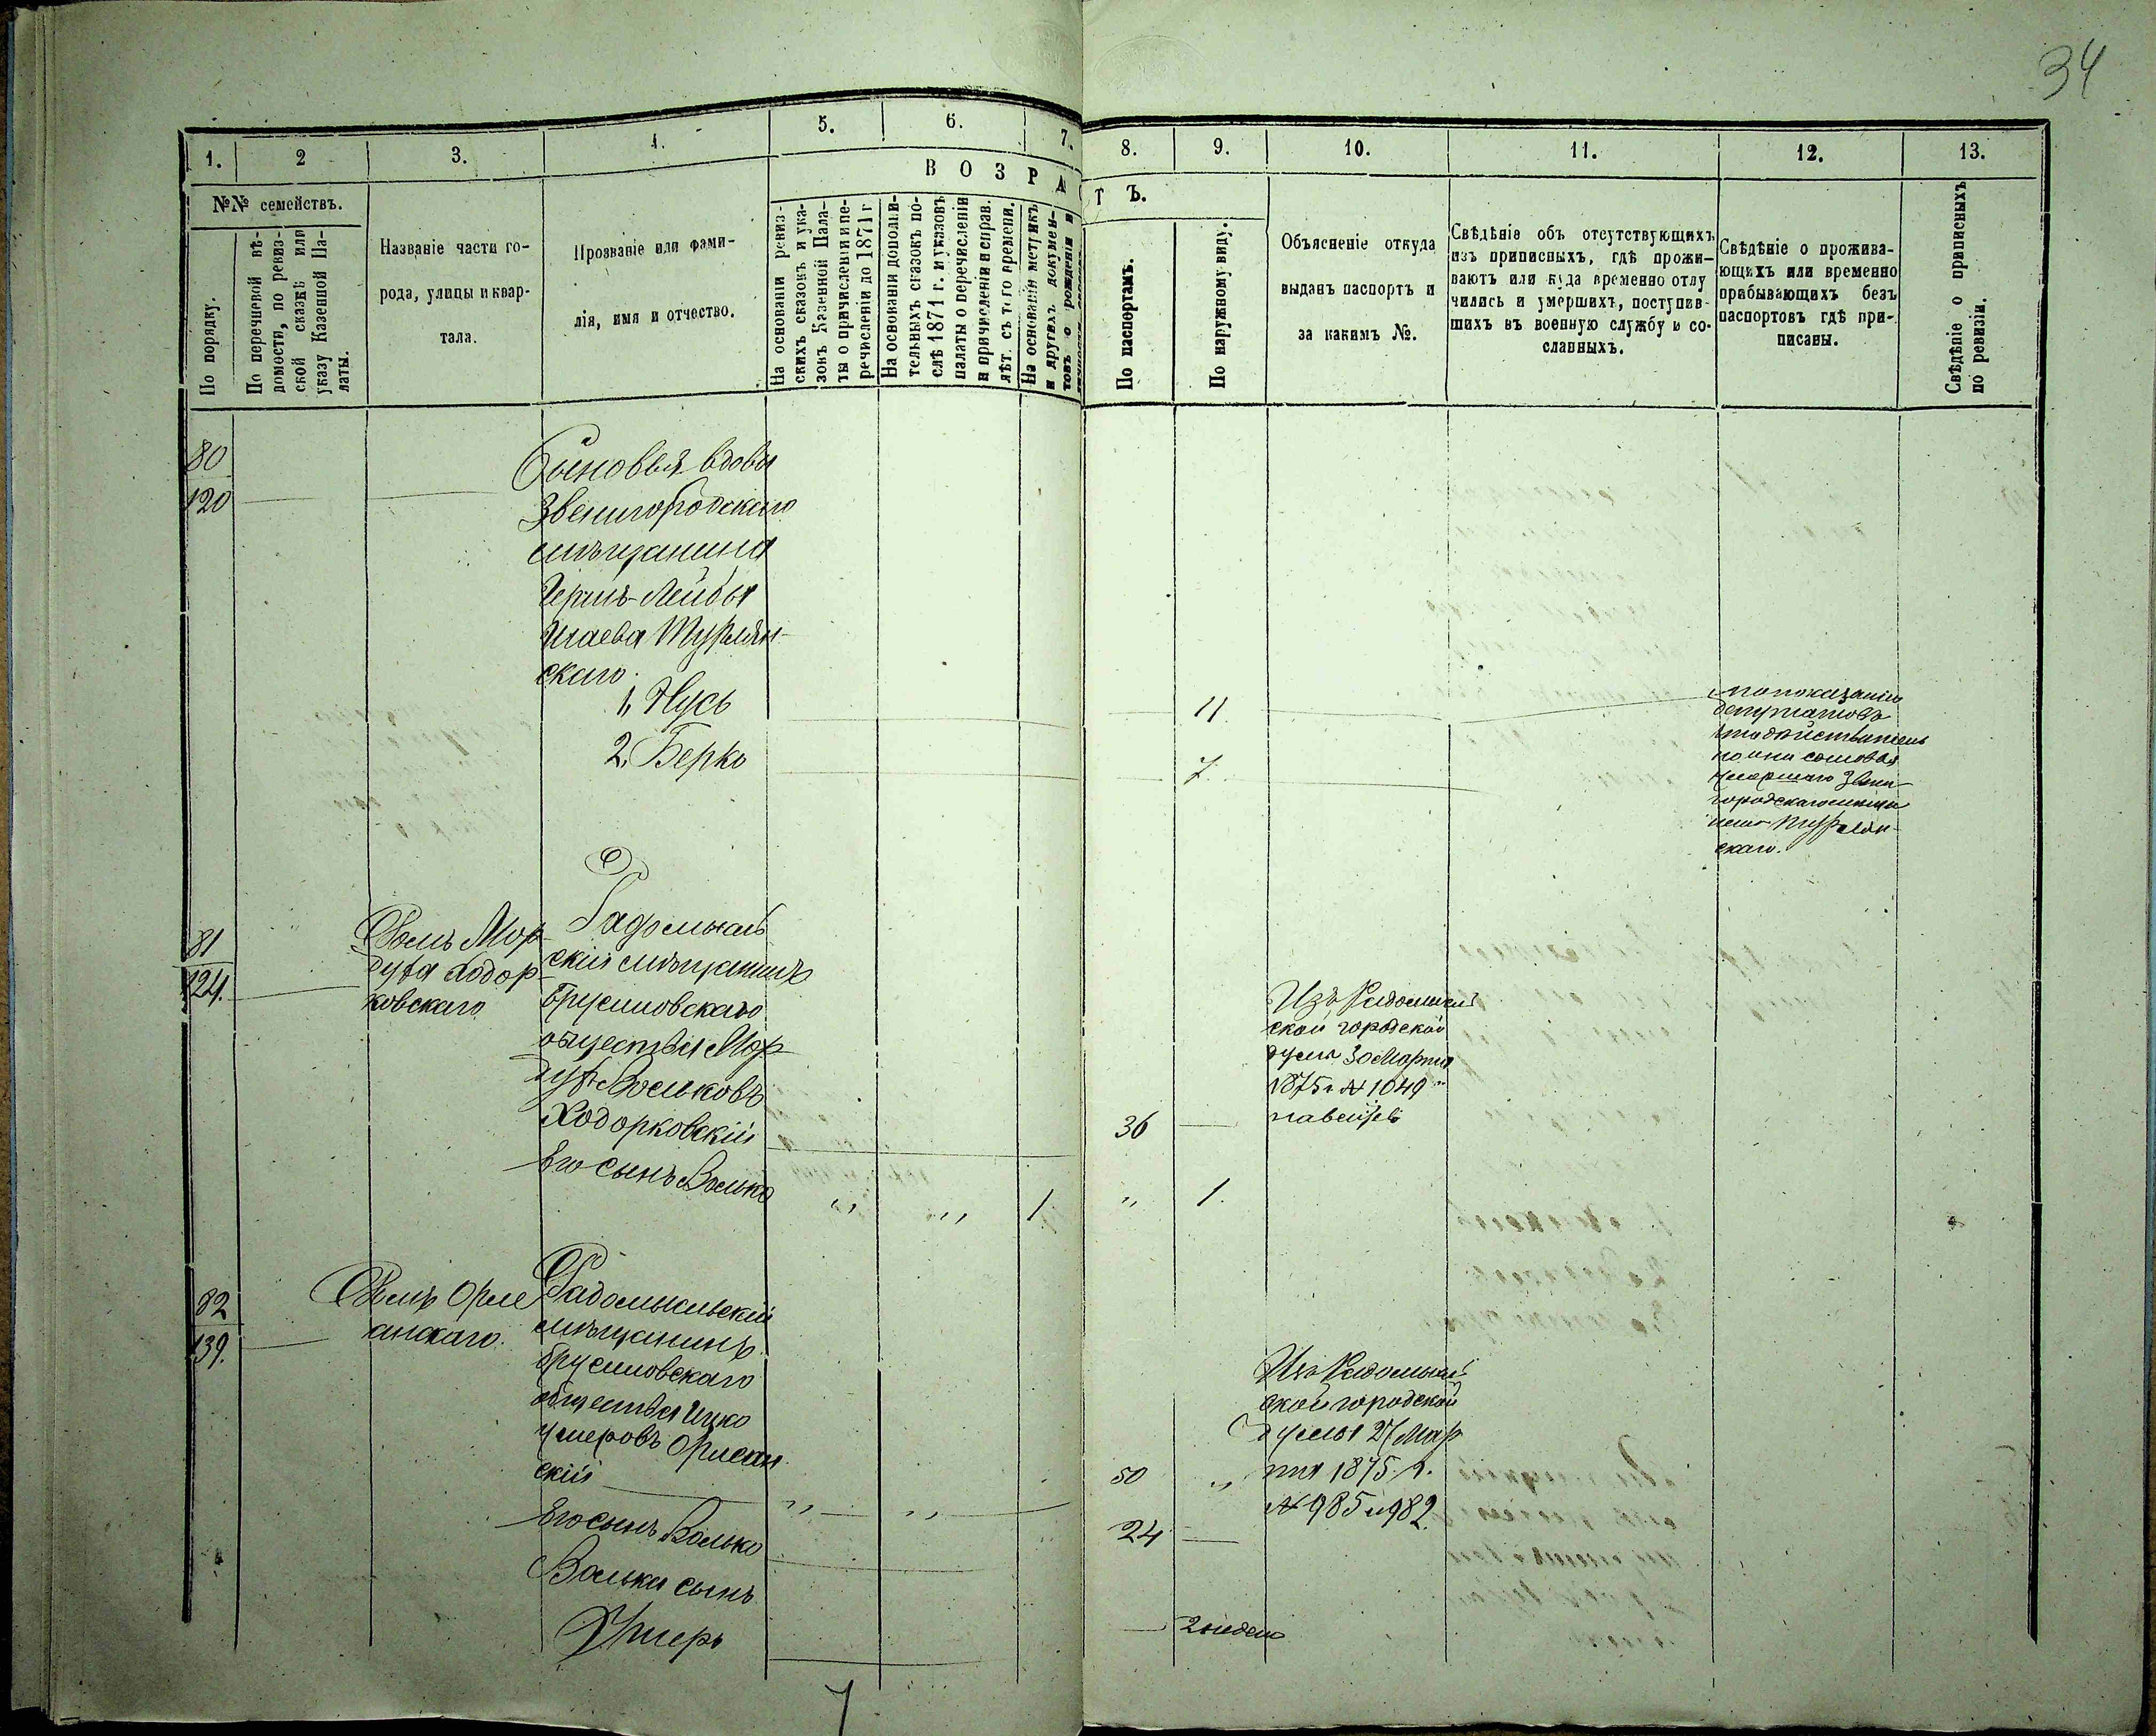 34
1.
2
3.
4.
5.
6.
7.
8.
9.
10.
11.
12.
13.
№№ семействъ.
ВОЗРАСТЪ.
По порядку.
По перечневой вѣ-
домости, по ревиз-
ской сказкѣ или
указу Казенной Па-
латы.
Названіе части го-
рода, улицы и квар-
тала.
Прозваніе или фами-
лія, имя и отчество.
На основаніи ревиз-
скихъ сказокъ и ука-
зовъ Казенной Пала-
ты о причисленіи и пе-
речисленіи до 1871 г
На основаніи дополни-
тельныхъ сказокъ по-
слѣ 1871 г. и указовъ
палаты о перечисленіи
и причисленіи и справ.
лѣт. съ того времени.
На основаніи метрикъ
и другихъ докумен-
товъ о рожденіи и
По паспортамъ.
По наружному виду.
Объясненіе откуда
выданъ паспортъ и
за какимъ №.
Свѣдѣніе объ отсутствующихъ
изъ приписныхъ, гдѣ прожи-
ваютъ или куда временно отлу
чились и умершихъ, поступив-
шихъ въ военную службу и со-
сланныхъ.
Свѣдѣніе о прожива-
ющихъ или временно
прибывающихъ безъ
паспортовъ гдѣ при-
писаны.
Свѣдѣніе о приписныхъ
по ревизіи.
80
120
Сыновья вдовы
Звенигородскаго
мѣщанина
Гершъ-Лейбы
Шаева Турлян-
скаго.
1, Нусь
11
2, Берко
7
по показанію
депутатовъ
что дѣйствитель
но они сыновья
умершаго Звени-
городскаго мѣща
нина Турлян-
скаго.
81
124.
Домъ Мор
духа Ходор-
ковскаго
Радомысль
скій мѣщанинъ
Брусиловскаго
общества Мор
духъ Вольковъ
Ходорковскій
36
Изъ Радомысль
ской городской
думы 30 Марта
1875 г № 1049
Его сынъ Волько
" " 1 " 1.
82
139.
Домъ Орле
анскаго.
Радомысльскій
мѣщанинъ
Брусиловскаго
общества Ицко
Умеровъ Орлеан
скій
" " 50 "
Изъ Радомысль
ской городской
думы 27 Мар
та 1875 г.
№ 985 и 982.
Его сынъ Волько
24
Волька сынъ
Умеръ
2 недели
7